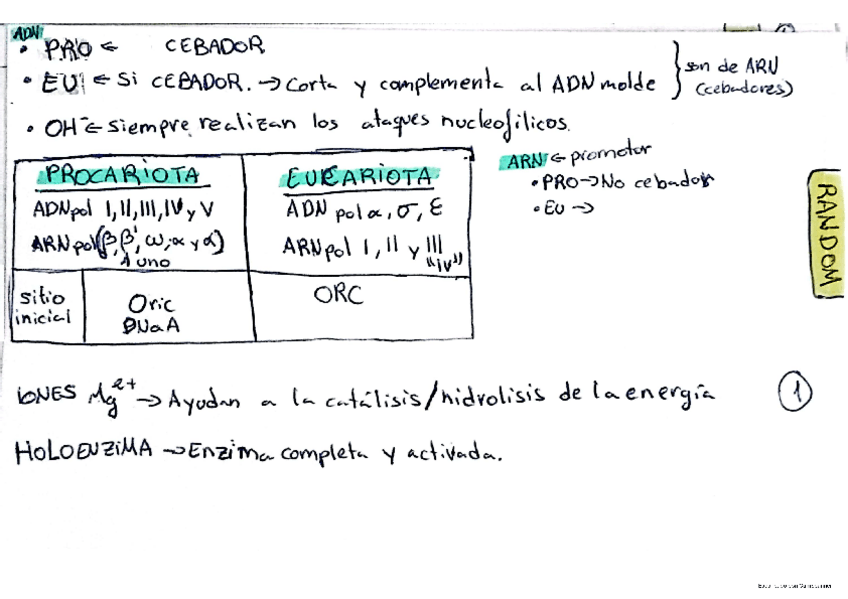 ADN
• PRO ← CEBADOR
• EU ← Si CEBADOR. → Corta y complementa al ADN molde
son de ARN
(cebadores)
• OH⁻ ← siempre realizan los ataques nucleofilicos.
PROCARIOTA
ADNpol I, II, III, IV y V
ARNpol(β, β', ω, α y α)
1 uno
EUCARIOTA
ADN pol α, σ, ε
ARNpol I, II y III
"iv"
sitio
inicial
Oric
DNaA
ORC
ARN ← promotor
• PRO → No cebador
• EU →
RANDOM
iONES Mg²⁺ → Ayudan a la catálisis/hidrolisis de la energía
1
HOLOENZiMA → Enzima completa y activada.